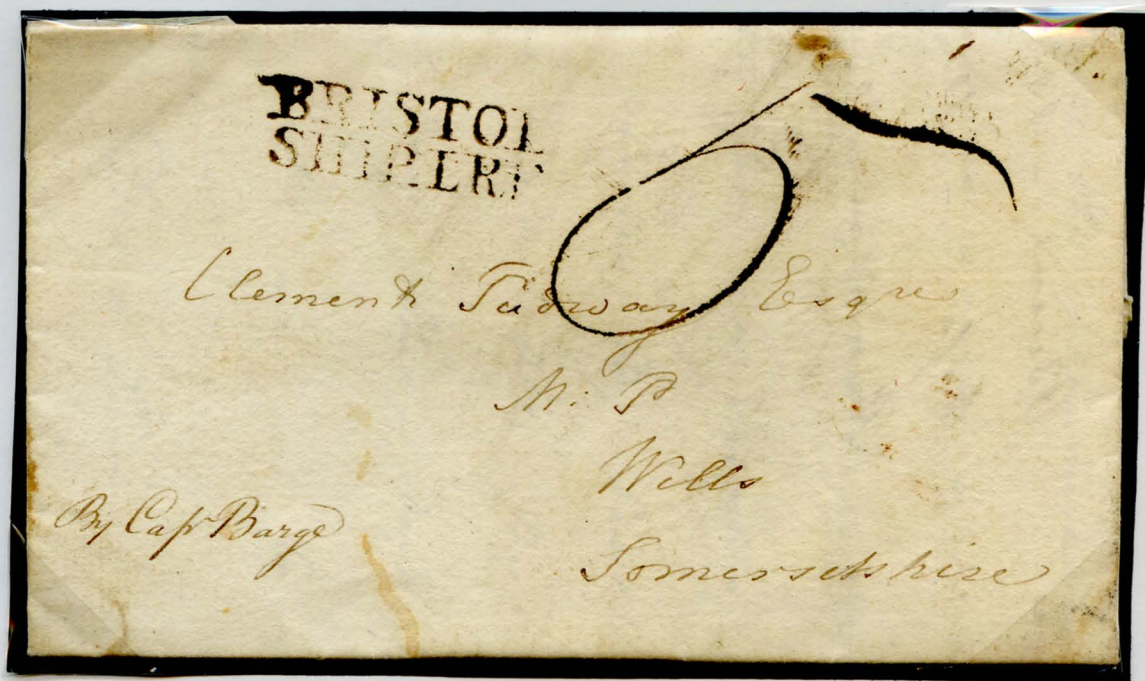 BRISTOL
SHIP.LRE
5
Clement Tudway Esqre
M: P
Wells
Somersetshire
By Capt Barge